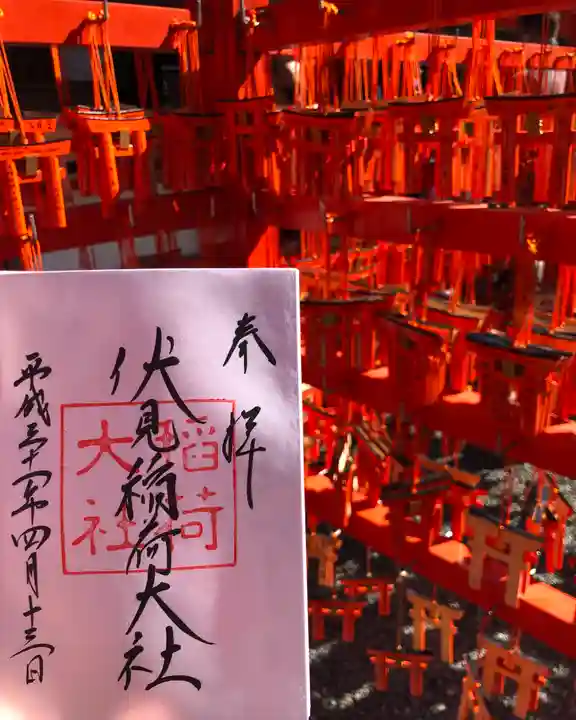 奉拝
伏見稲荷大社
稲荷
大社
平成三十一年四月十三日